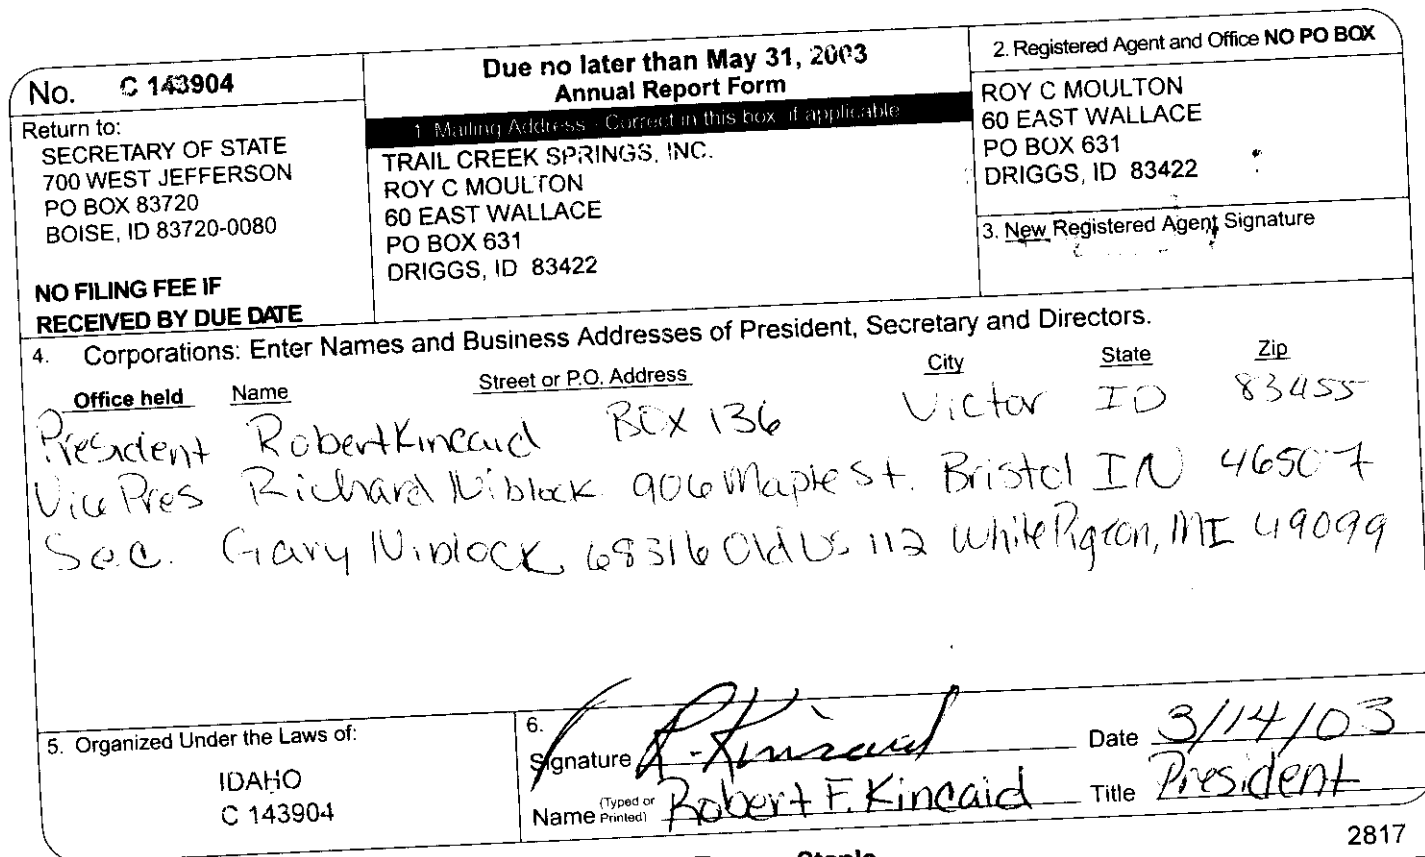 No. C 143904
Return to:
SECRETARY OF STATE
700 WEST JEFFERSON
PO BOX 83720
BOISE, ID 83720-0080
NO FILING FEE IF
RECEIVED BY DUE DATE
Due no later than May 31, 2003
Annual Report Form
1. Mailing Address - Correct in this box if applicable
TRAIL CREEK SPRINGS, INC.
ROY C MOULTON
60 EAST WALLACE
PO BOX 631
DRIGGS, ID 83422
2. Registered Agent and Office NO PO BOX
ROY C MOULTON
60 EAST WALLACE
PO BOX 631
DRIGGS, ID 83422
3. New Registered Agent Signature
4. Corporations: Enter Names and Business Addresses of President, Secretary and Directors.
Office held Name Street or P.O. Address City State Zip
President Robert Kincaid BOX 136 Victor ID 83455
Vice Pres Richard Niblock 906 Maple St. Bristol IN 46507
Sec. Gary Niblock 68316 Old US 112 White Pigeon, MI 49099
5. Organized Under the Laws of:
IDAHO
C 143904
6.
Signature R. Kincaid Date 3/14/03
Name (Typed or Printed) Robert F. Kincaid Title President
2817